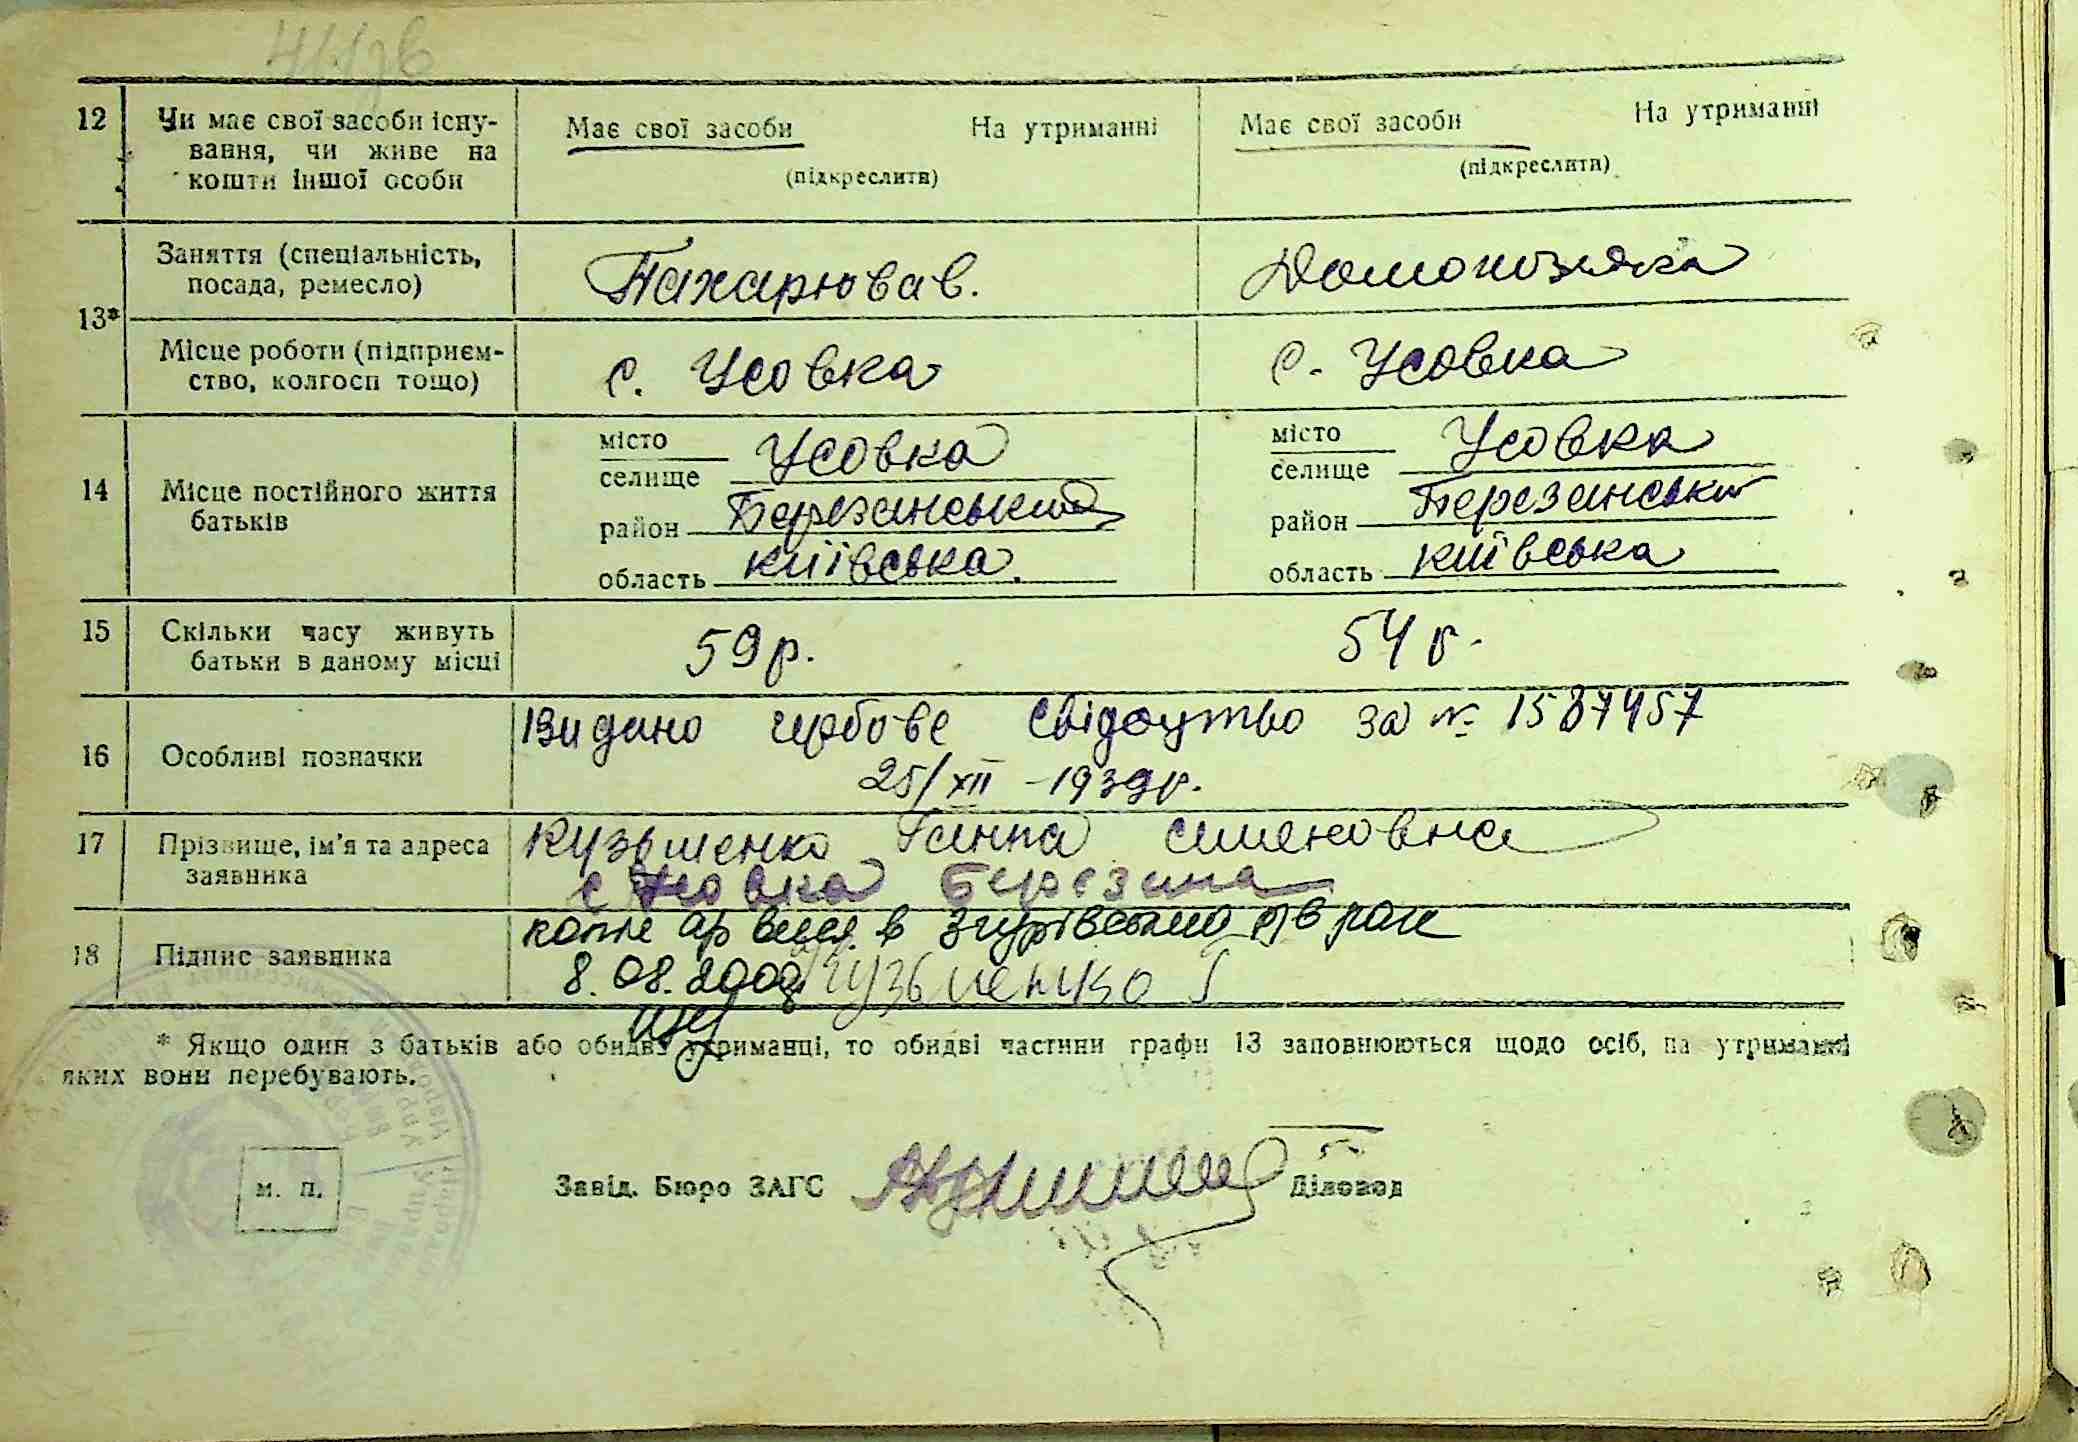 12 Чи має свої засоби існу- Має свої засоби На утриманні Має свої засоби На утриманні
вання, чи живе на (підкреслити) (підкреслити)
кошти іншої особи
13* Заняття (спеціальність, Пахарював. Домохозяйка
посада, ремесло)
Місце роботи (підприєм- с. Усовка с. Усовка
ство, колгосп тощо)
14 Місце постійного життя місто Усовка місто Усовка
батьків селище селище
район Березанський район Березанський
область київська. область київська
15 Скільки часу живуть 59 р. 54 р.
батьки в даному місці
16 Особливі позначки Видано гербове свідоцтво за № 1587457
25/XII - 1939 р.
17 Прізвище, ім'я та адреса Кузьменко Ганна Семеновна
заявника с Усовка
18 Підпис заявника в Згурівському
8.08. Кузьменко Г
* Якщо один з батьків або обидва утриманці, то обидві частини графи 13 заповнюються щодо осіб, на утриманні
яких вони перебувають.
м. п. Завід. Бюро ЗАГС Діловод